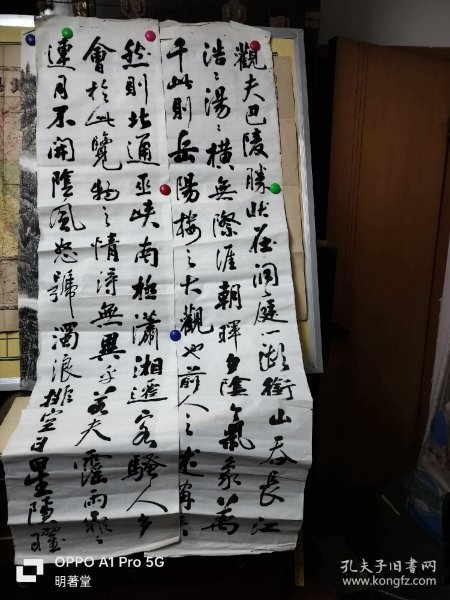 觀夫巴陵勝狀在洞庭一湖銜山吞長江
浩〻湯〻橫無際涯朝暉夕陰氣象萬
千此則岳陽樓之大觀也前人之述備矣
然則北通巫峽南極瀟湘遷客騷人多
會於此覽物之情得無異乎若夫霪雨霏〻
連月不開陰風怒號濁浪排空日星隱曜
OPPO A1 Pro 5G
明著堂
孔夫子旧書网
www.kongfz.com